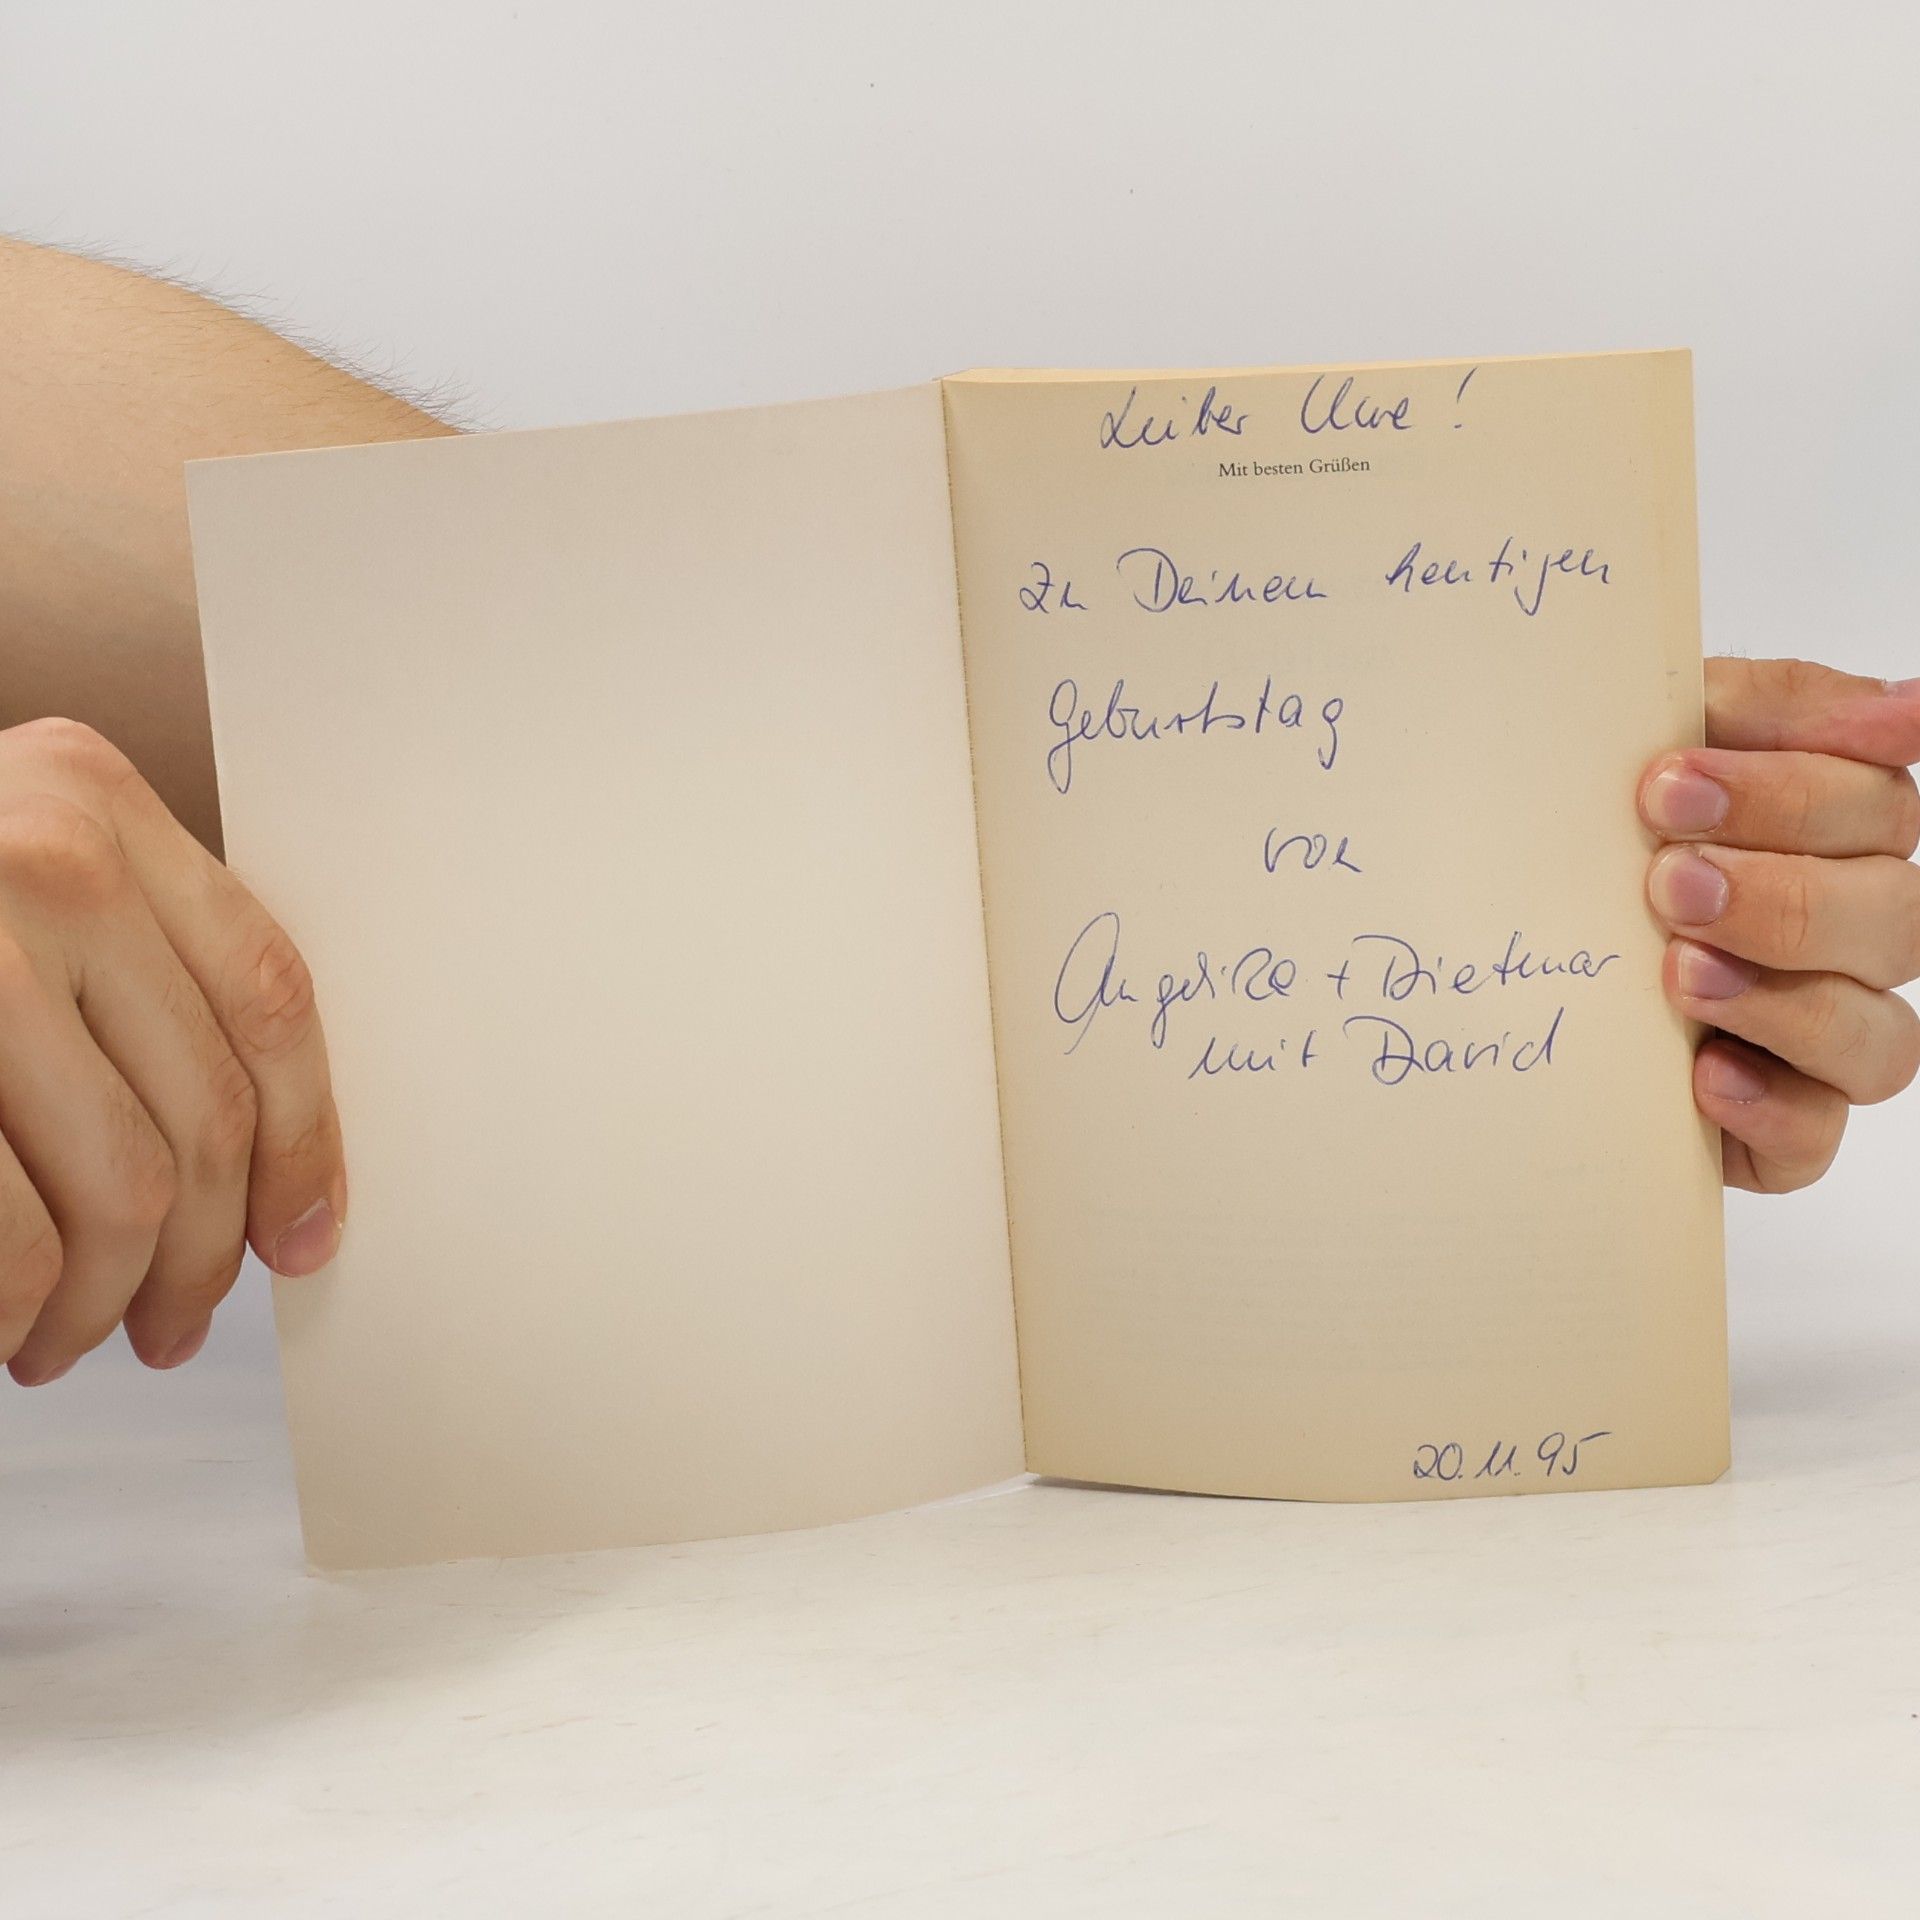 Lieber Uwe!
Mit besten Grüßen
zu Deinem heutigen
Geburtstag
von
Angelika + Dietmar
mit David
20.11.95